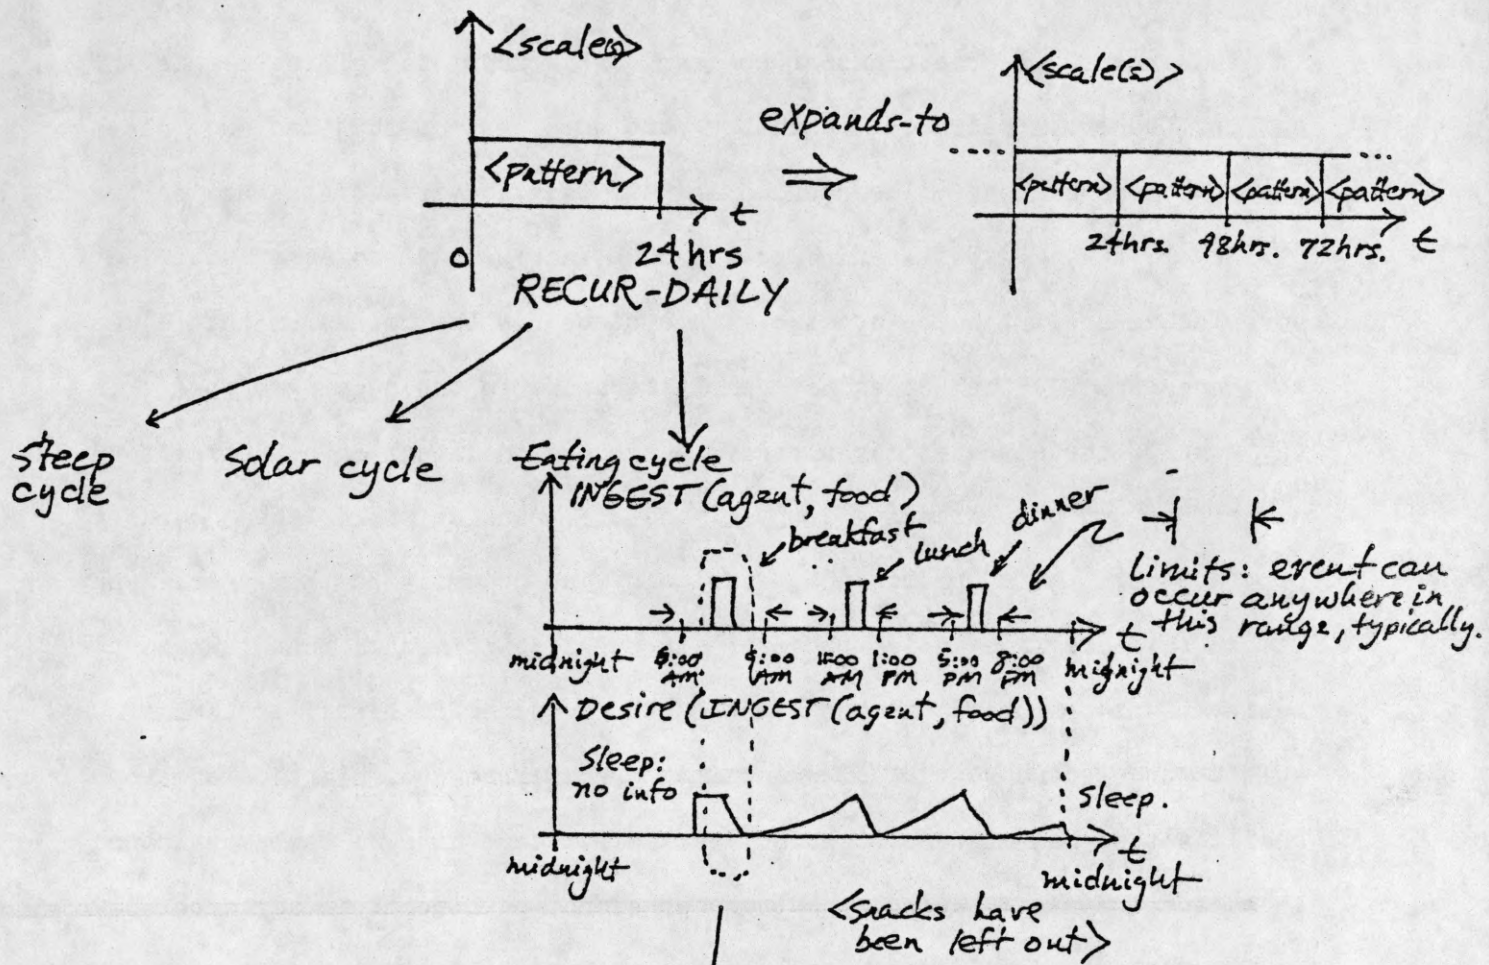 <scale(s)>
<scale(s)>
expands-to
<pattern>
<pattern> <pattern> <pattern> <pattern>
t
0
24hrs
24hrs. 48hrs. 72hrs. t
RECUR-DAILY
Sleep
cycle
Solar cycle
Eating cycle
INGEST (agent, food)
breakfast
lunch
dinner
Limits: event can
occur anywhere in
this range, typically.
t
midnight 6:00 AM 9:00 AM 11:00 AM 1:00 PM 5:00 PM 8:00 PM midnight
Desire (INGEST (agent, food))
Sleep:
no info
Sleep.
t
midnight
midnight
<Snacks have
been left out>